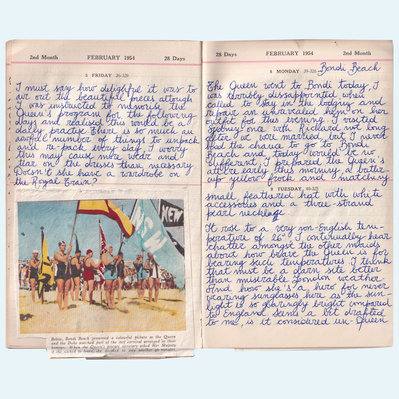 2nd Month
FEBRUARY 1954
28 Days
5 FRIDAY
I must say how delightful it was to
set out the beautiful pieces although
I was instructed to memorise the
Queen's program for the following
days and realised this would be a
daily practice. There is so much an
awful number of things to unpack
and re-pack every day, I worry
this may cause more wear and
tear on the dresses than nassary.
Doesn't she have a wardrobe on
the Royal Train?
NEW
Below, Bondi Beach presented a colourful picture as the Queen
and the Duke watched part of the surf carnival arranged in their
28 Days
FEBRUARY 1954
2nd Month
8 MONDAY
Bondi Beach
The Queen went to Bondi today, I
was terribly dissapointed when
called to stay in the lodgings and
repair an unraveled hem on her
outfit for this evening. I visited
Sydney once with Richard not long
after we were married, but I never
had the chance to go to Bondi
Beach and today would be no
different. I prepared the Queen's
attire early this morning, a butter
cup yellow frock and matching
9 TUESDAY
small feathered hat with white
accessories and a three-strand
pearl necklace.
It rose to a very non-English tem-
perature of 26°. I continually hear
chatter amongst the other maids
about how brave the Queen is for
bearing such temperatures. I think
that must be a darn site better
than miserable London weather.
And how she's a hero for never
wearing sunglasses here as the sun-
light is so glaringly bright compared
to England. Seems a bit drafted
to me, is it considered un-Queen